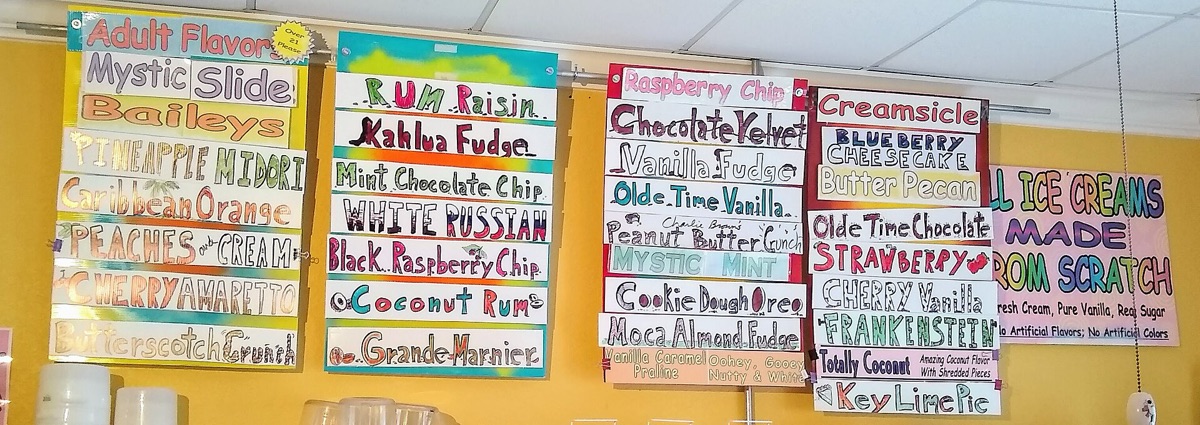 Adult Flavors
Over
21
Please
Mystic Slide
Baileys
PINEAPPLE MIDORI
Caribbean Orange
PEACHES and CREAM
CHERRY AMARETTO
Butterscotch Crunch
RUM Raisin
Kahlua Fudge
Mint Chocolate Chip
WHITE RUSSIAN
Black Raspberry Chip
Coconut Rum
Grande Marnier
Raspberry Chip
Chocolate Velvet
Vanilla Fudge
Olde Time Vanilla
Charlie Brown's
Peanut Butter Crunch
MYSTIC MINT
Cookie Dough Oreo
Moca Almond Fudge
Vanilla Caramel Oohey, Gooey
Praline Nutty & White
Creamsicle
BLUEBERRY
CHEESECAKE
Butter Pecan
Olde Time Chocolate
STRAWBERRY
CHERRY Vanilla
"FRANKENSTEIN"
Totally Coconut Amazing Coconut Flavor
With Shredded Pieces
Key Lime Pie
LL ICE CREAMS
MADE
ROM SCRATCH
resh Cream, Pure Vanilla, Real Sugar
o Artificial Flavors; No Artificial Colors